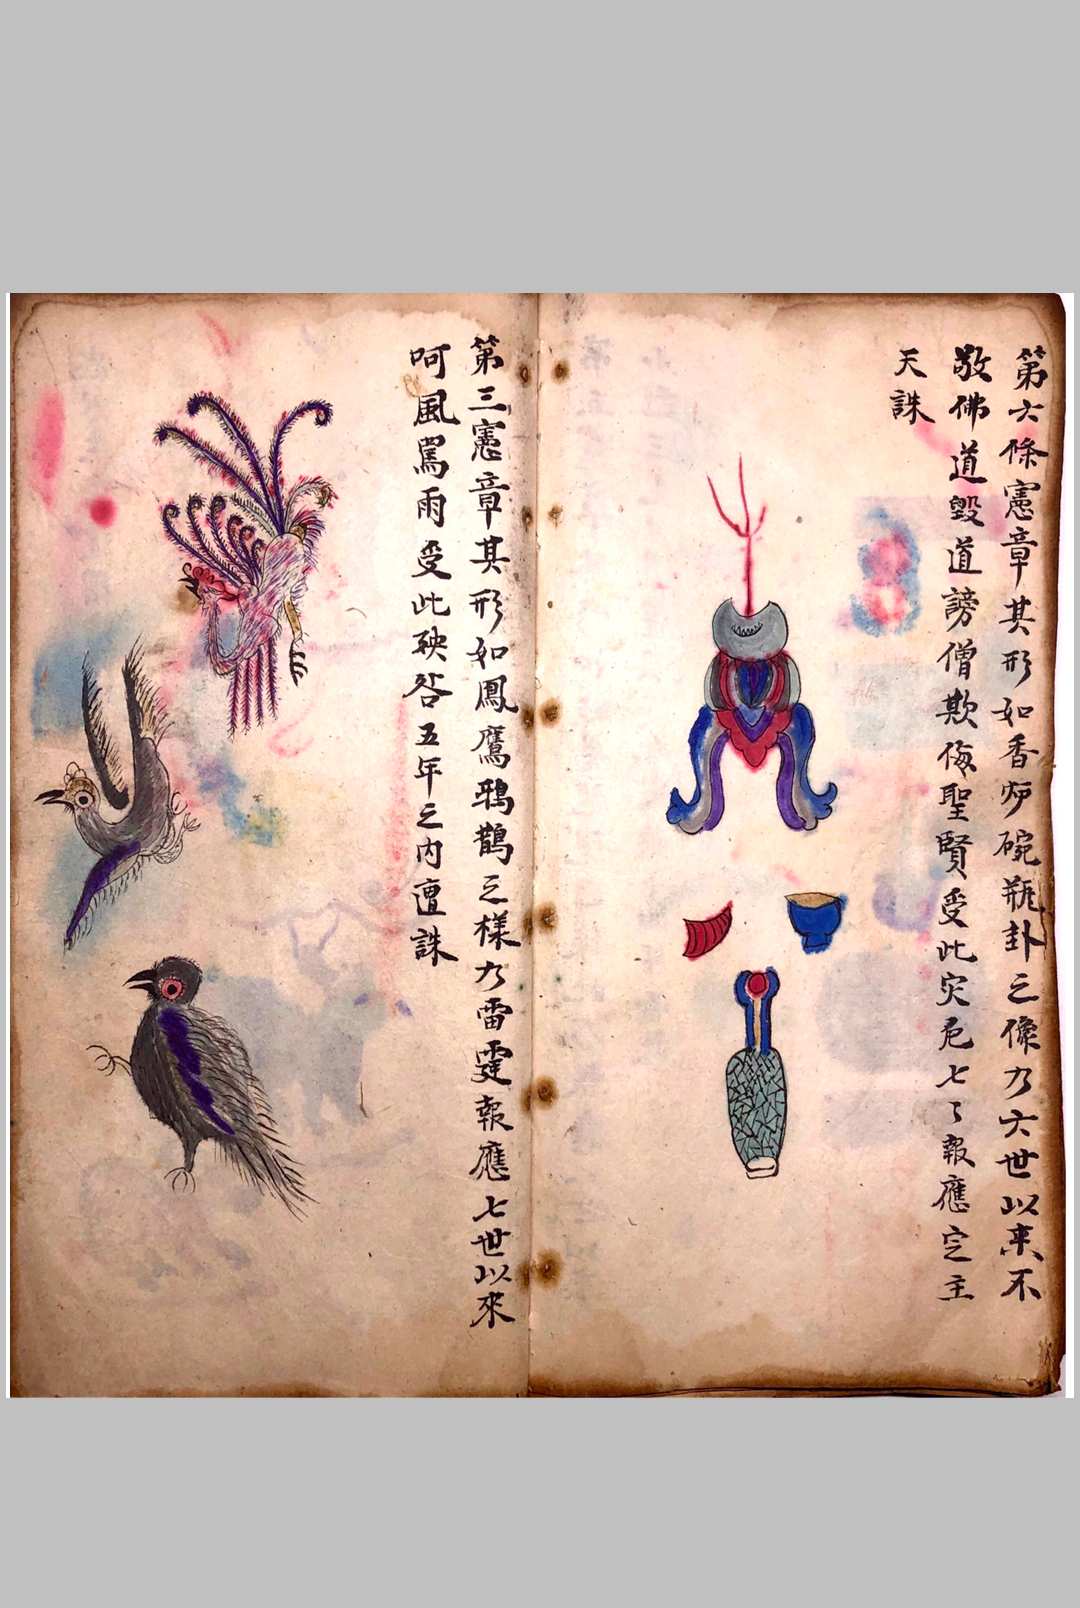 第六條憲章其形如香炉碗瓶卦之像乃六世以来不
敬佛道毀道謗僧欺侮聖賢受此灾危七〻報應定主
天誅
第三憲章其形如鳳鷹鴉鵲之樣乃雷霆報應七世以來
呵風罵雨受此殃咎五年之内遭誅